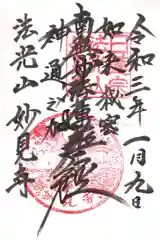 令和三年一月九日
如来秘密
南無妙法蓮華経
神通之力
法光山妙見寺